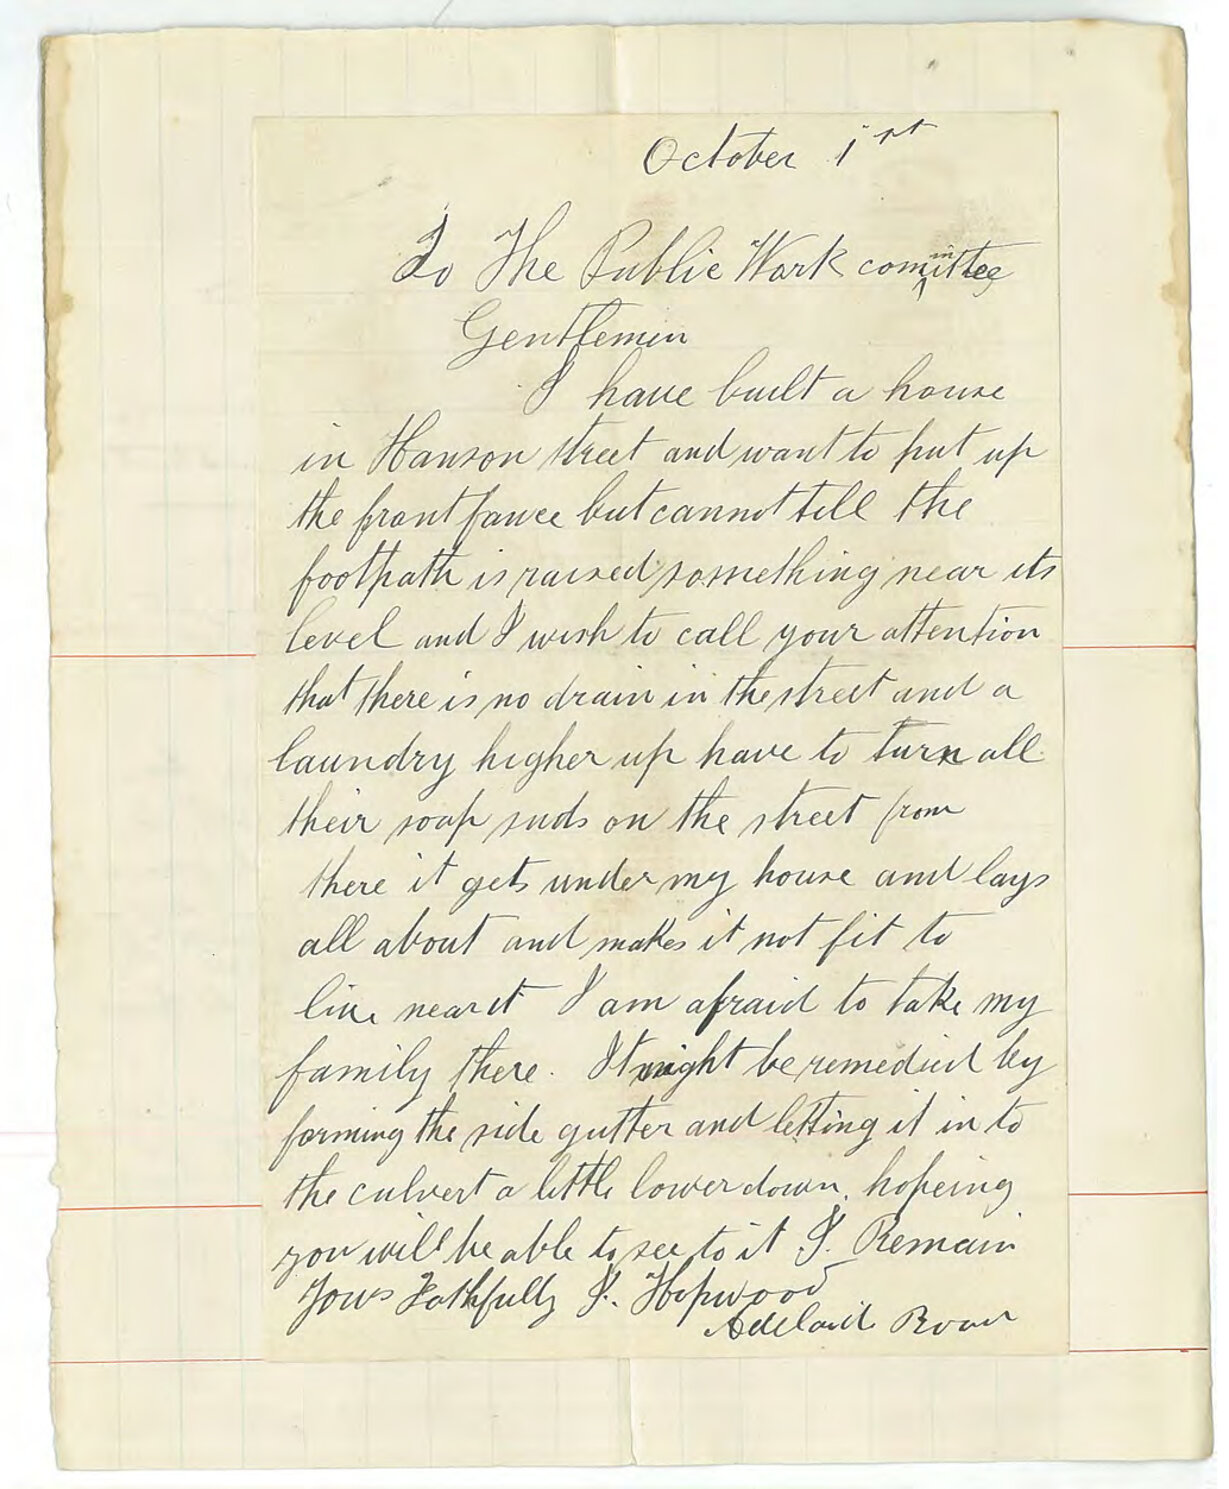 October 1st
To The Public Work committee
Gentlemin
I have built a house
in Hanson street and want to put up
the front fance but cannot till the
footpath is raised something near its
level and I wish to call your attention
that there is no drain in the street and a
laundry higher up have to turn all
their soap suds on the street from
there it gets under my house and lays
all about and makes it not fit to
live near it I am afraid to take my
family there. It might be remedied by
forming the side gutter and letting it in to
the culvert a little lower down. hopeing
you will be able to see to it I. Remain
Yours Fathfully J. Hopwood
Adelaide Road